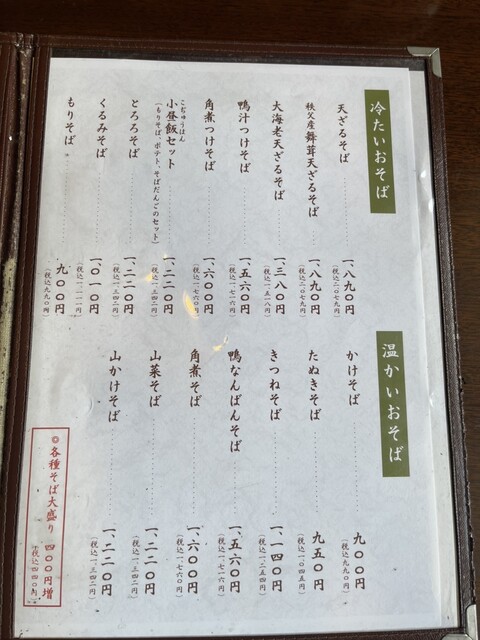 冷たいおそば
天ざるそば 一、八九〇円
(税込二、〇七九円)
秩父産舞茸天ざるそば 一、八九〇円
(税込二、〇七九円)
大海老天ざるそば 一、三八〇円
(税込一、五一八円)
鴨汁つけそば 一、五六〇円
(税込一、七一六円)
角煮つけそば 一、六〇〇円
(税込一、七六〇円)
こぢゅうはん
小昼飯セット 一、二二〇円
(もりそば、ポテト、そばだんごのセット) (税込一、三四二円)
とろろそば 一、二二〇円
(税込一、三四二円)
くるみそば 一、〇一〇円
(税込一、一一一円)
もりそば 九〇〇円
(税込九九〇円)
温かいおそば
かけそば 九〇〇円
(税込九九〇円)
たぬきそば 九五〇円
(税込一、〇四五円)
きつねそば 一、一四〇円
(税込一、二五四円)
鴨なんばんそば 一、五六〇円
(税込一、七一六円)
角煮そば 一、六〇〇円
(税込一、七六〇円)
山菜そば 一、二二〇円
(税込一、三四二円)
山かけそば 一、二二〇円
(税込一、三四二円)
◎各種そば大盛り 四〇〇円増
(税込四四〇円)